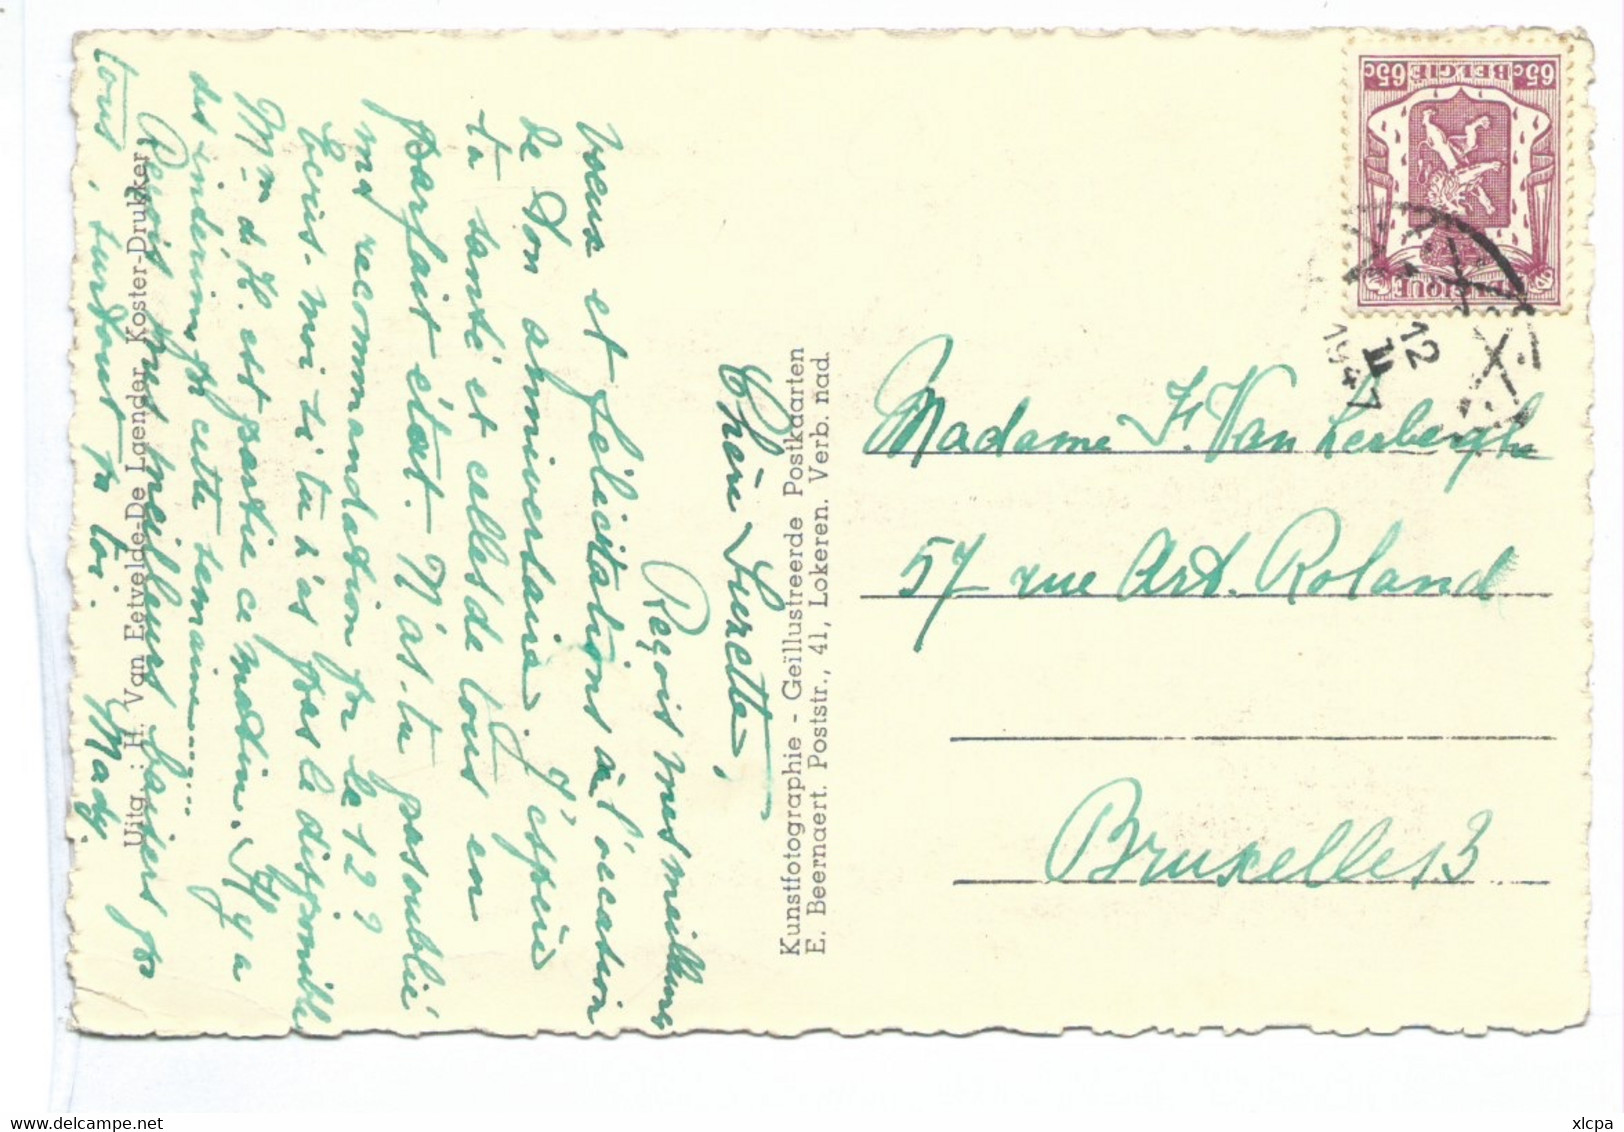 Chère Suzette,
Reçois mes meilleurs
voeux et félicitations à l'occasion
de ton anniversaire. J'espère
ta santé et celles de tous en
parfait état. N'as-tu pas oublié
ma recommandation pr le 12 ?
Ecris-moi si tu n'as pas le disponible
Mme d. H. est partie ce matin. Il y a
des intérims pr cette semaine........
Reçois mes meilleurs baisers pr
tous, surtout pr toi.
Mady.
Uitg. : H. Van Eetvelde-De Laender, Koster-Drukker,
Kunstfotographie - Geïllustreerde Postkaarten
E. Beernaert. Poststr., 41, Lokeren. Verb. nad.
BELGIE
65c 65c
BELGIQUE
12
II
1947
Madame F. Van Lerberghe
57 rue Art. Roland
Bruxelles 3
xlcpa